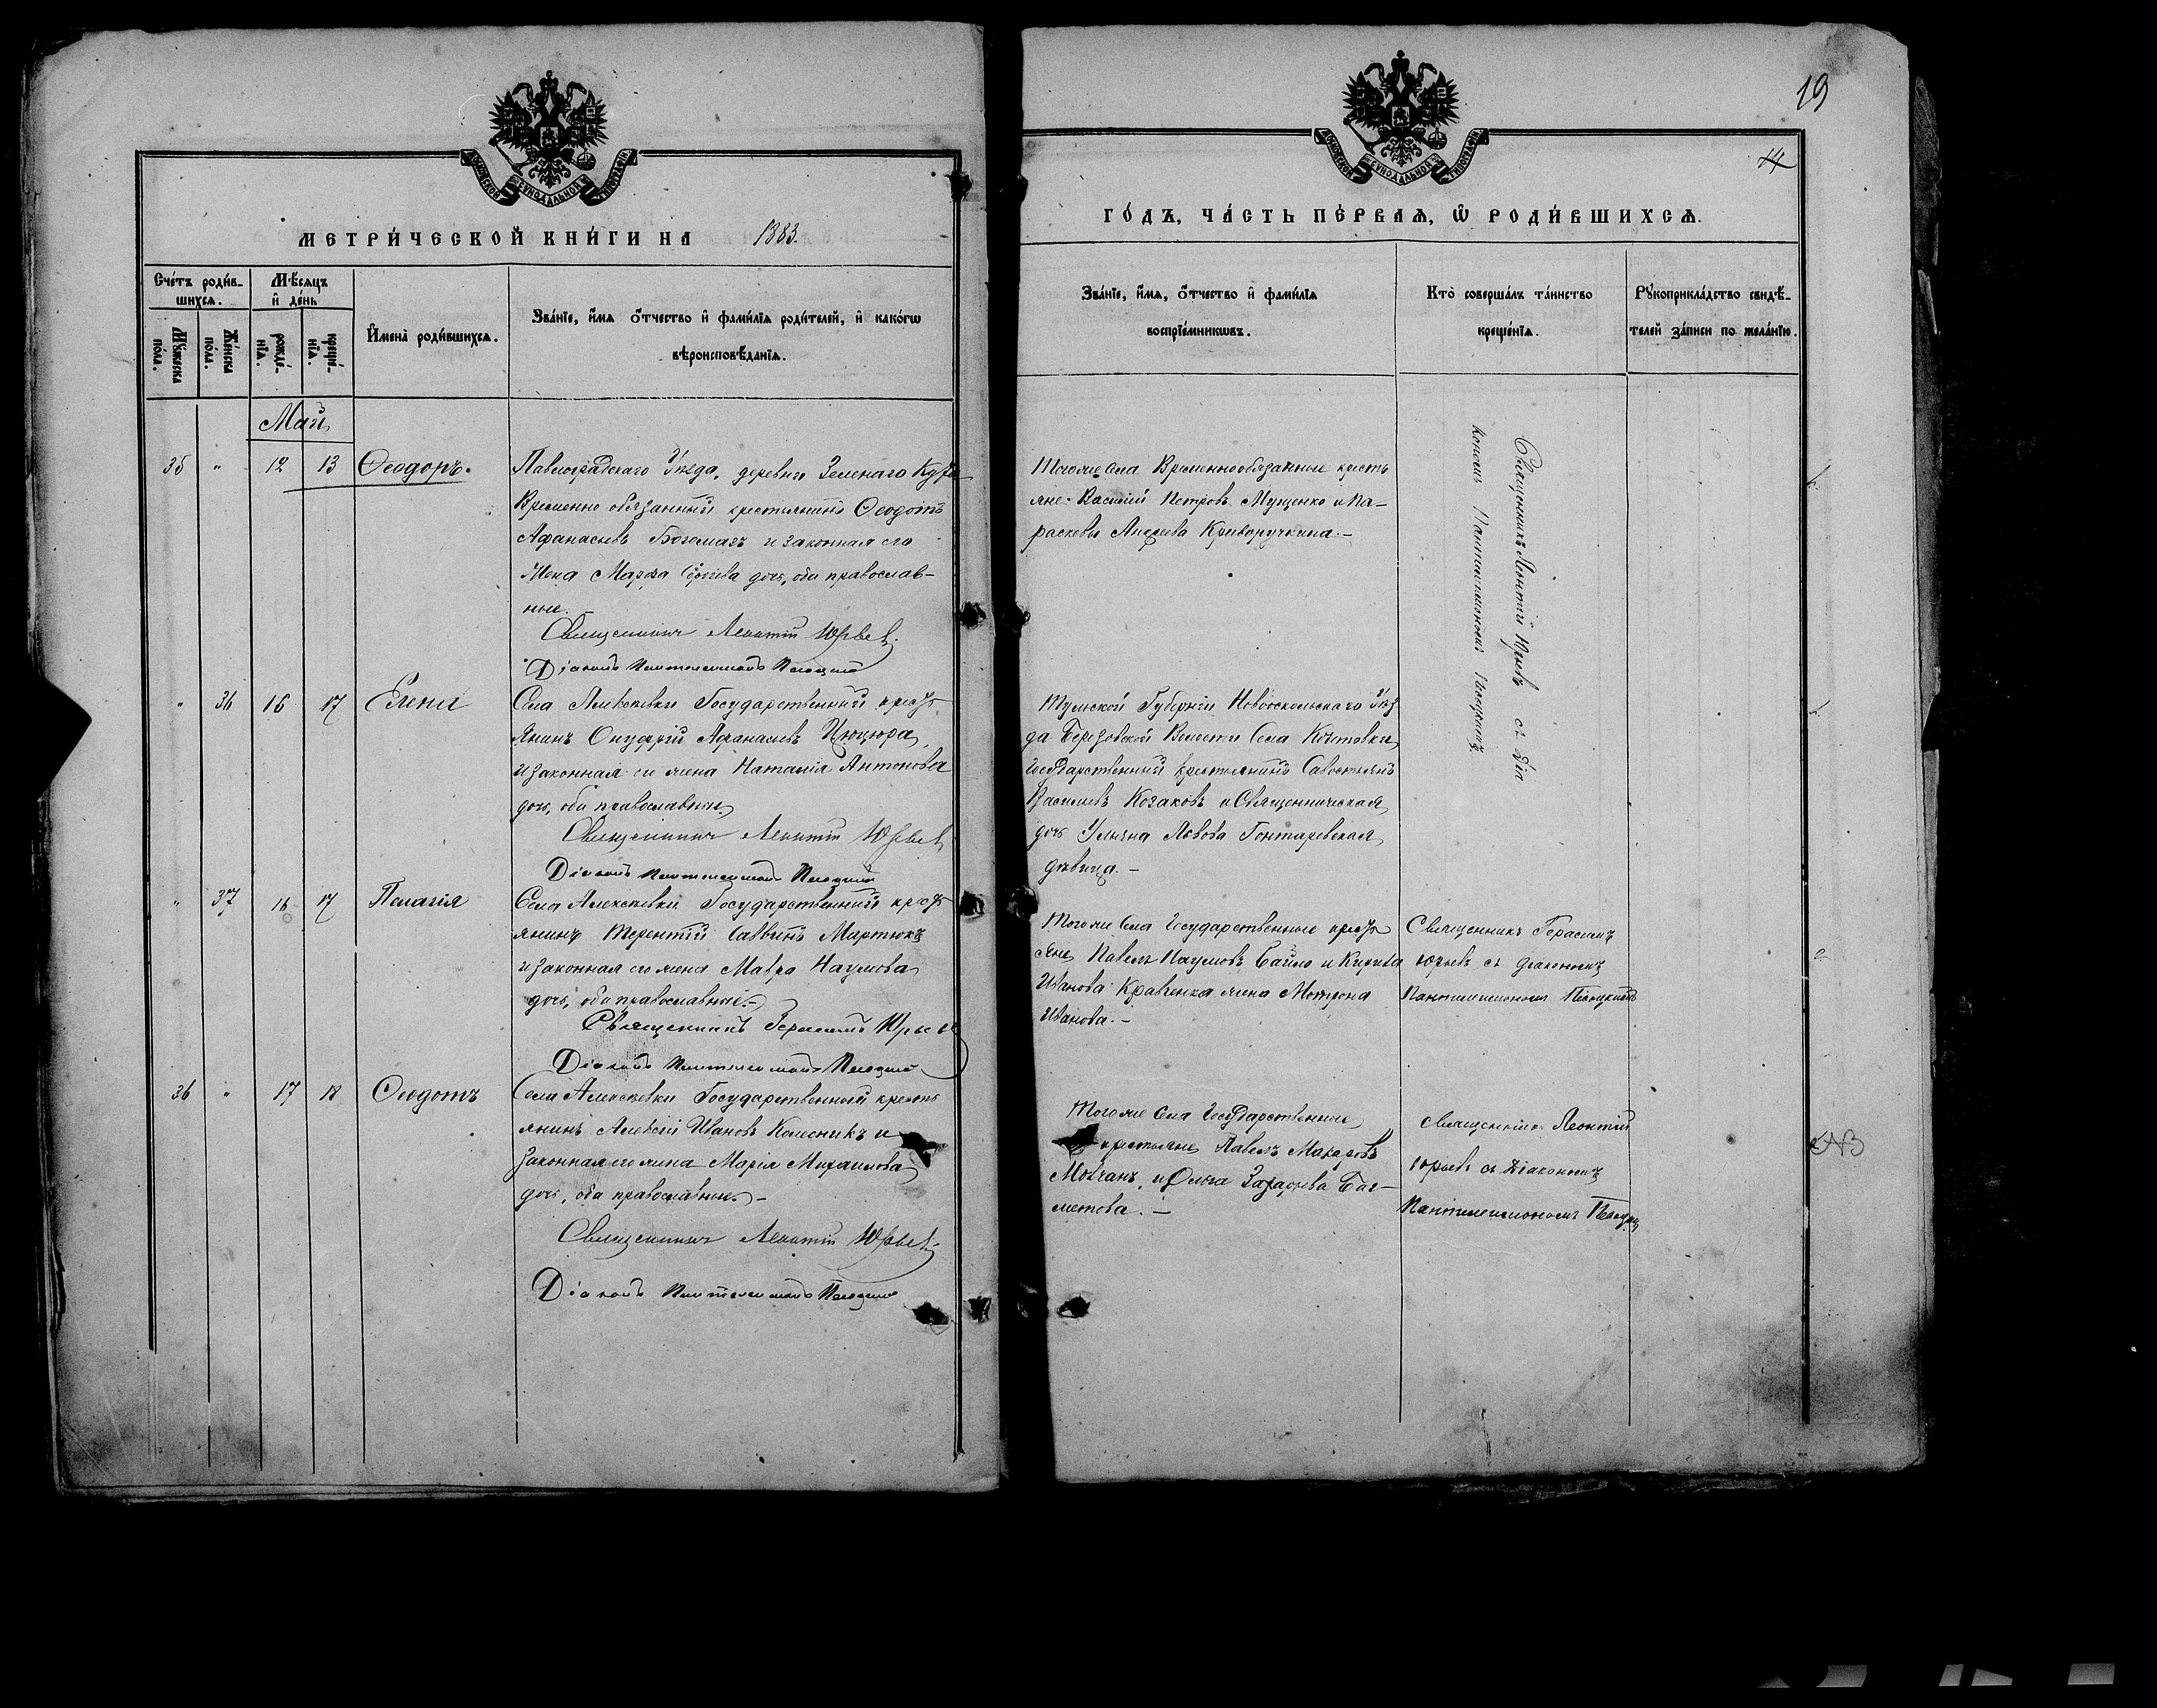 19
14
МОСКОВСКОЙ СѴНОДАЛЬНОЙ ТИПОГРАФІИ
МОСКОВСКОЙ СѴНОДАЛЬНОЙ ТИПОГРАФІИ
МЕТРИ́ЧЕСКОЙ КНИ́ГИ НА 1883.
ГО́ДЪ, ЧА́СТЬ ПЕ́РВАЯ, Ѿ РОДИ́ВШИХСѦ.
Сче́тъ роди́в-
шихсѧ.
Мѣ́сяцъ
и҆ де́нь
Мꙋ́жеска по́ла.
Же́нска по́ла.
рожде́-
нїѧ.
креще́-
нїѧ.
И҆мена̀ роди́вшихсѧ.
Зва́нїе, и҆́мѧ ѻ҆́тчество и҆ фами́лїѧ роди́телей, и҆ како́гѡ
вѣроисповѣ́данїѧ.
Зва́нїе, и҆́мѧ, ѻ҆́тчество и҆ фами́лїѧ
воспрїе́мникѡвъ.
Кто̀ соверша́лъ та́инство
креще́нїѧ.
Рꙋкоприкла́дство свидѣ́-
телей за́писи по жела́нїю.
Май
35 " 12 13 Ѳеодоръ.
Павлоградскаго Уѣзда, деревни Зеленаго
Временно обязанный крестьянинъ Ѳеодотъ
Афанасьевъ Богомазъ и законная его
Жена Марфа дочь, оба православ-
ные.
Священникъ Леонтій Юрьевъ.
Діаконъ Пантелеимонъ
Тогоже Села Временнообязанные кресть
яне Василій Петровъ Мущенко и Па-
раскева Криворучкина.-
Священникъ Леонтій Юрьевъ съ Діа
кономъ Пантелеимономъ
" 36 16 17 Елена
Села Алексѣевки Государственный крест
янинъ Онуфрій Афанасьевъ Цюцюра
и законная ея жена Наталія Антонова
дочь, оба православные.
Священникъ Леонтій Юрьевъ
Діаконъ Пантелеимонъ
Тульской Губерніи Новооскольскаго Уѣз
да Березовской Волости Села Кочетовки
Государственный крестьянинъ Савостьянъ
Васильевъ Козаковъ и Священническая
дочь Львова Гонтаревская
дѣвица.-
" 37 16 17 Пелагія
Села Алексѣевки Государственный крест
янинъ Терентій Саввинъ Мартюкъ
и законная его жена Мавра Наумова
дочь, оба православные.-
Священникъ Герасимъ Юрьевъ
Діаконъ Пантелеимонъ
Тогоже Села Государственные крестья
яне Павелъ Наумовъ Байло и Кирила
Иванова Кравченка жена Мотрона
Иванова.-
Священникъ Герасимъ
Юрьевъ съ діакономъ
Пантелеимономъ
36 " 17 18 Ѳеодотъ
Села Алексѣевки Государственный кресть
янинъ Алексій Ивановъ Колесникъ и
Законная его жена Марія Михаилова
дочь, оба православные.-
Священникъ Леонтій Юрьевъ
Діаконъ Пантелеимонъ
Тогоже Села Государственные
крестьяне Павелъ Макаровъ
Мовчанъ, и Ольга Захарьева Баг-
метова.-
Священникъ Леонтій
Юрьевъ съ Діакономъ
Пантелеимономъ
NB